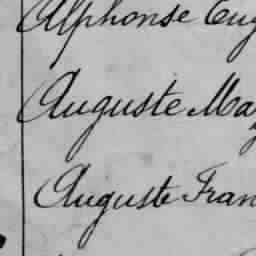 Alphonse Eug
Auguste Ma
Auguste Fran